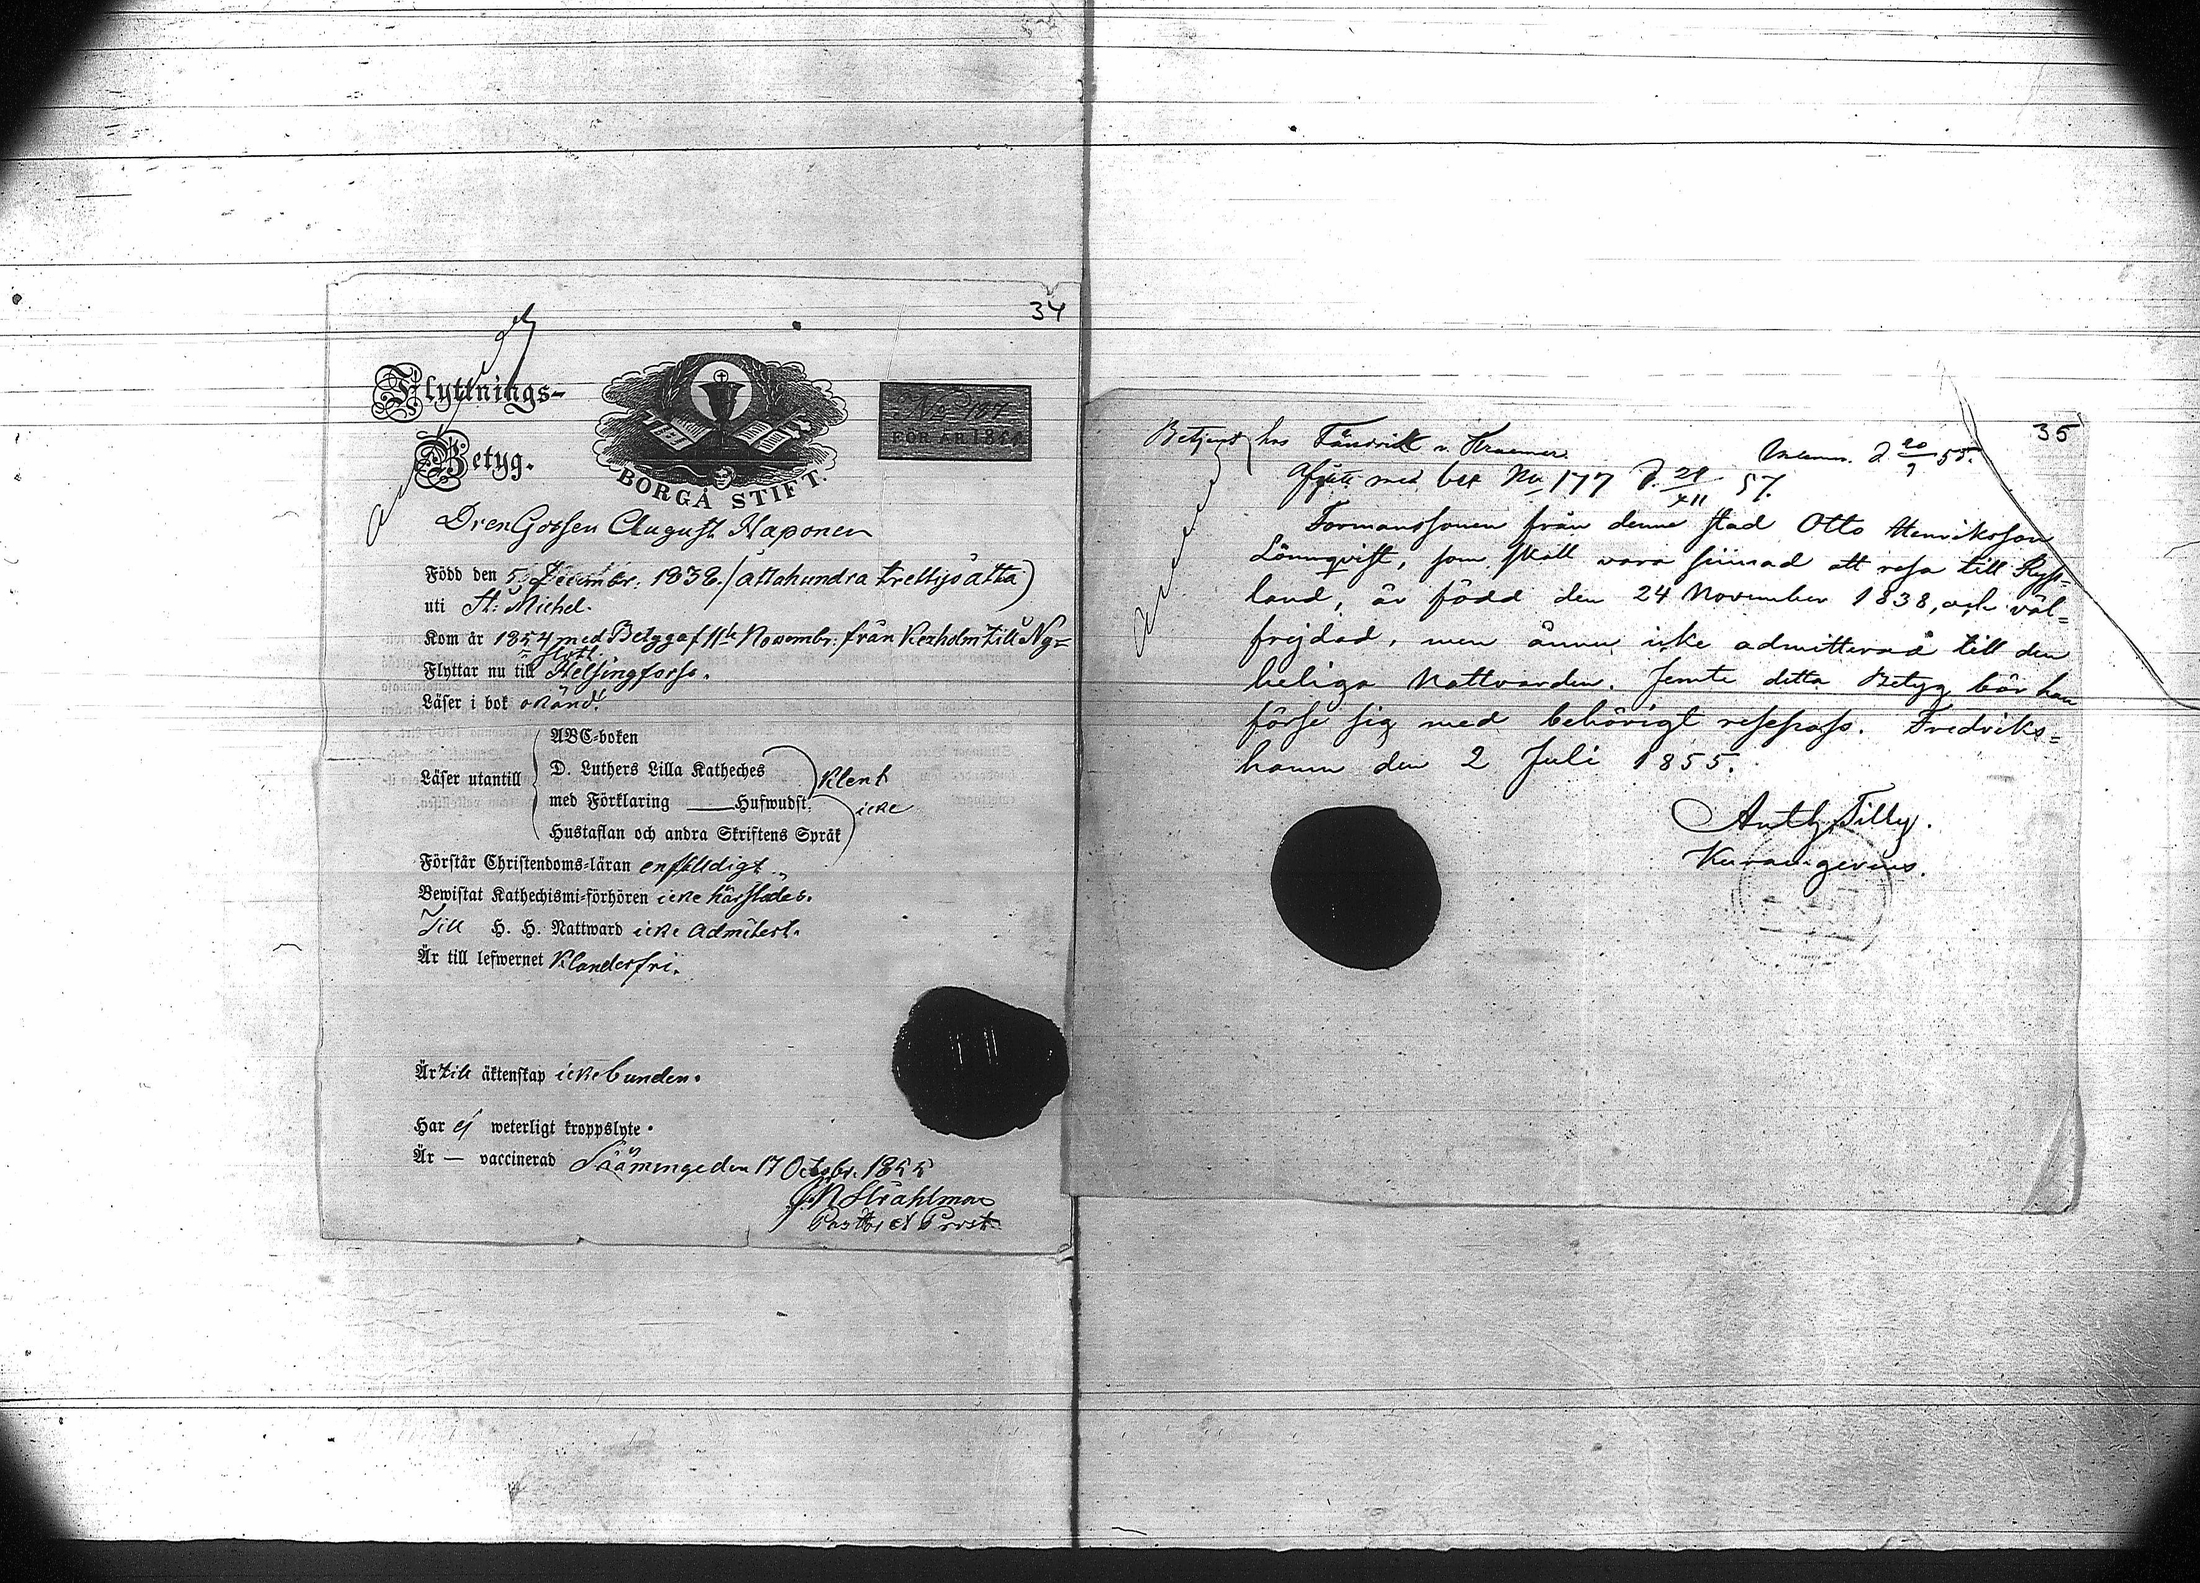 34
Flyttnings-
Betyg.
No 107
FÖR ÅR 1855
BORGÅ STIFT.
DrenGossen August Haponen
Född den 5 Decembr. 1838. (åttahundra trettijoåtta)
uti St: Michel.
Kom år 1854 med Betyg af 11te Novembr. från Kexholm till Ny=
slott.
Flyttar nu till Helsingforss.
Läser i bok okänd.
Läser utantill
ABC-boken
D. Luthers Lilla Katheches
med Förklaring — Hufwudst.
Hustaflan och andra Skriftens Språk
klent
icke
Förstår Christendoms-läran enfaldigt.
Bewistat Kathechismi-förhören icke härstädes.
Till H. H. Nattward icke admitert.
Är till lefwernet Klanderfri.
Är till äktenskap icke bunden.
Har ej weterligt kroppslyte.
Är — vaccinerad Sääminge den 17 Octobr. 1855
Stråhlman
Pastor et Prost
35
Betjent hos Fändrick v. Kraemer.
d 20/9 55.
Afgått med bet No 177 d. 21/XII 57.
Formanssonen från denne stad Otto Henriksson
Lönnqvist, som skall vara sinnad att resa till Ryss=
land, är född den 24 November 1838, och väl=
frejdad, men ännu icke admitterad till den
heliga Nattvarden. Jemte detta Betyg bör han
förse sig med behörigt respass. Fredriks=
hamn den 2 Juli 1855.
Anth. Tilly.